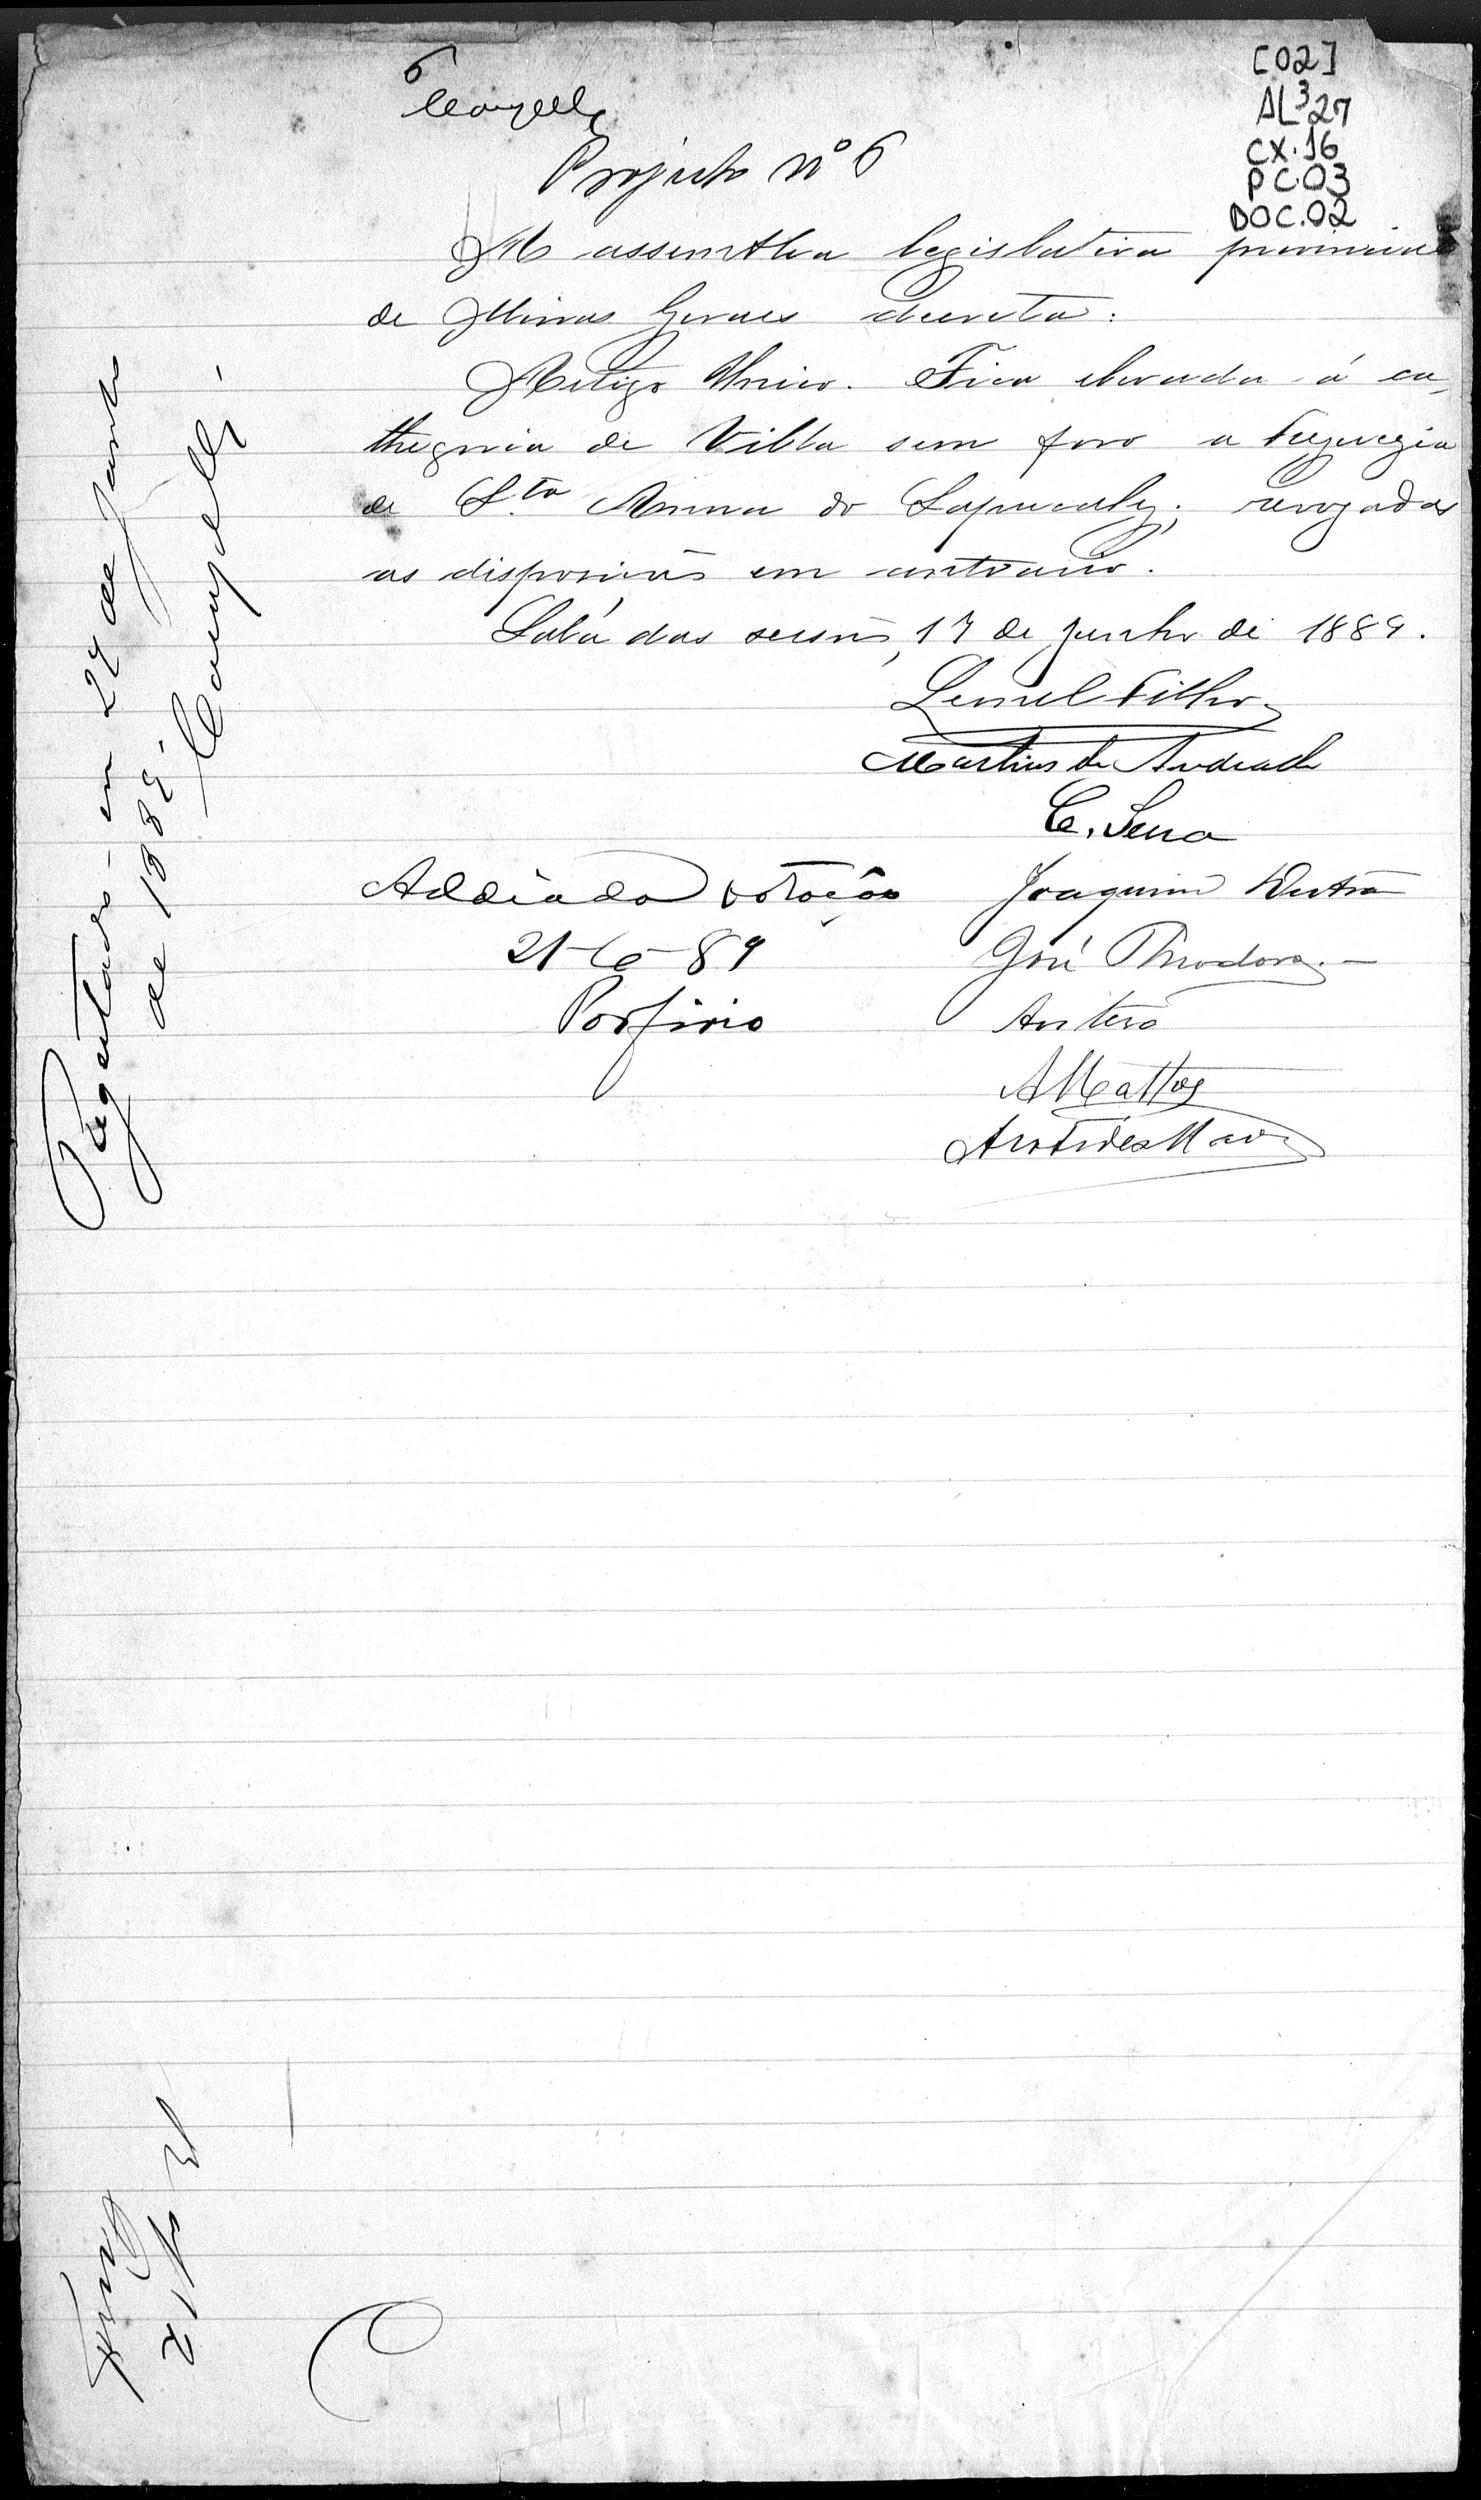 6
Campello
[02]
AL³27
CX.16
PC.03
DOC.02
Projecto nº 6
A assemblea legislativa provincial
de Minas Geraes decreta:
Artigo Unico. Fica elevada á ca-
thegoria de Villa sem foro a Freguezia
de Sta Anna do Sapucahy; revogadas
as disposições em contrario.
Sala das sessões, 17 de Junho de 1889.
Lemel Filho
Martins de Andrade
C. Sena
Addiada votação
21-6-89
Porfirio
Joaquim Dutra
José Theodoro.
Antero
A Mattos
Aristides M
em 27 de Junho
de 1889.
Campello